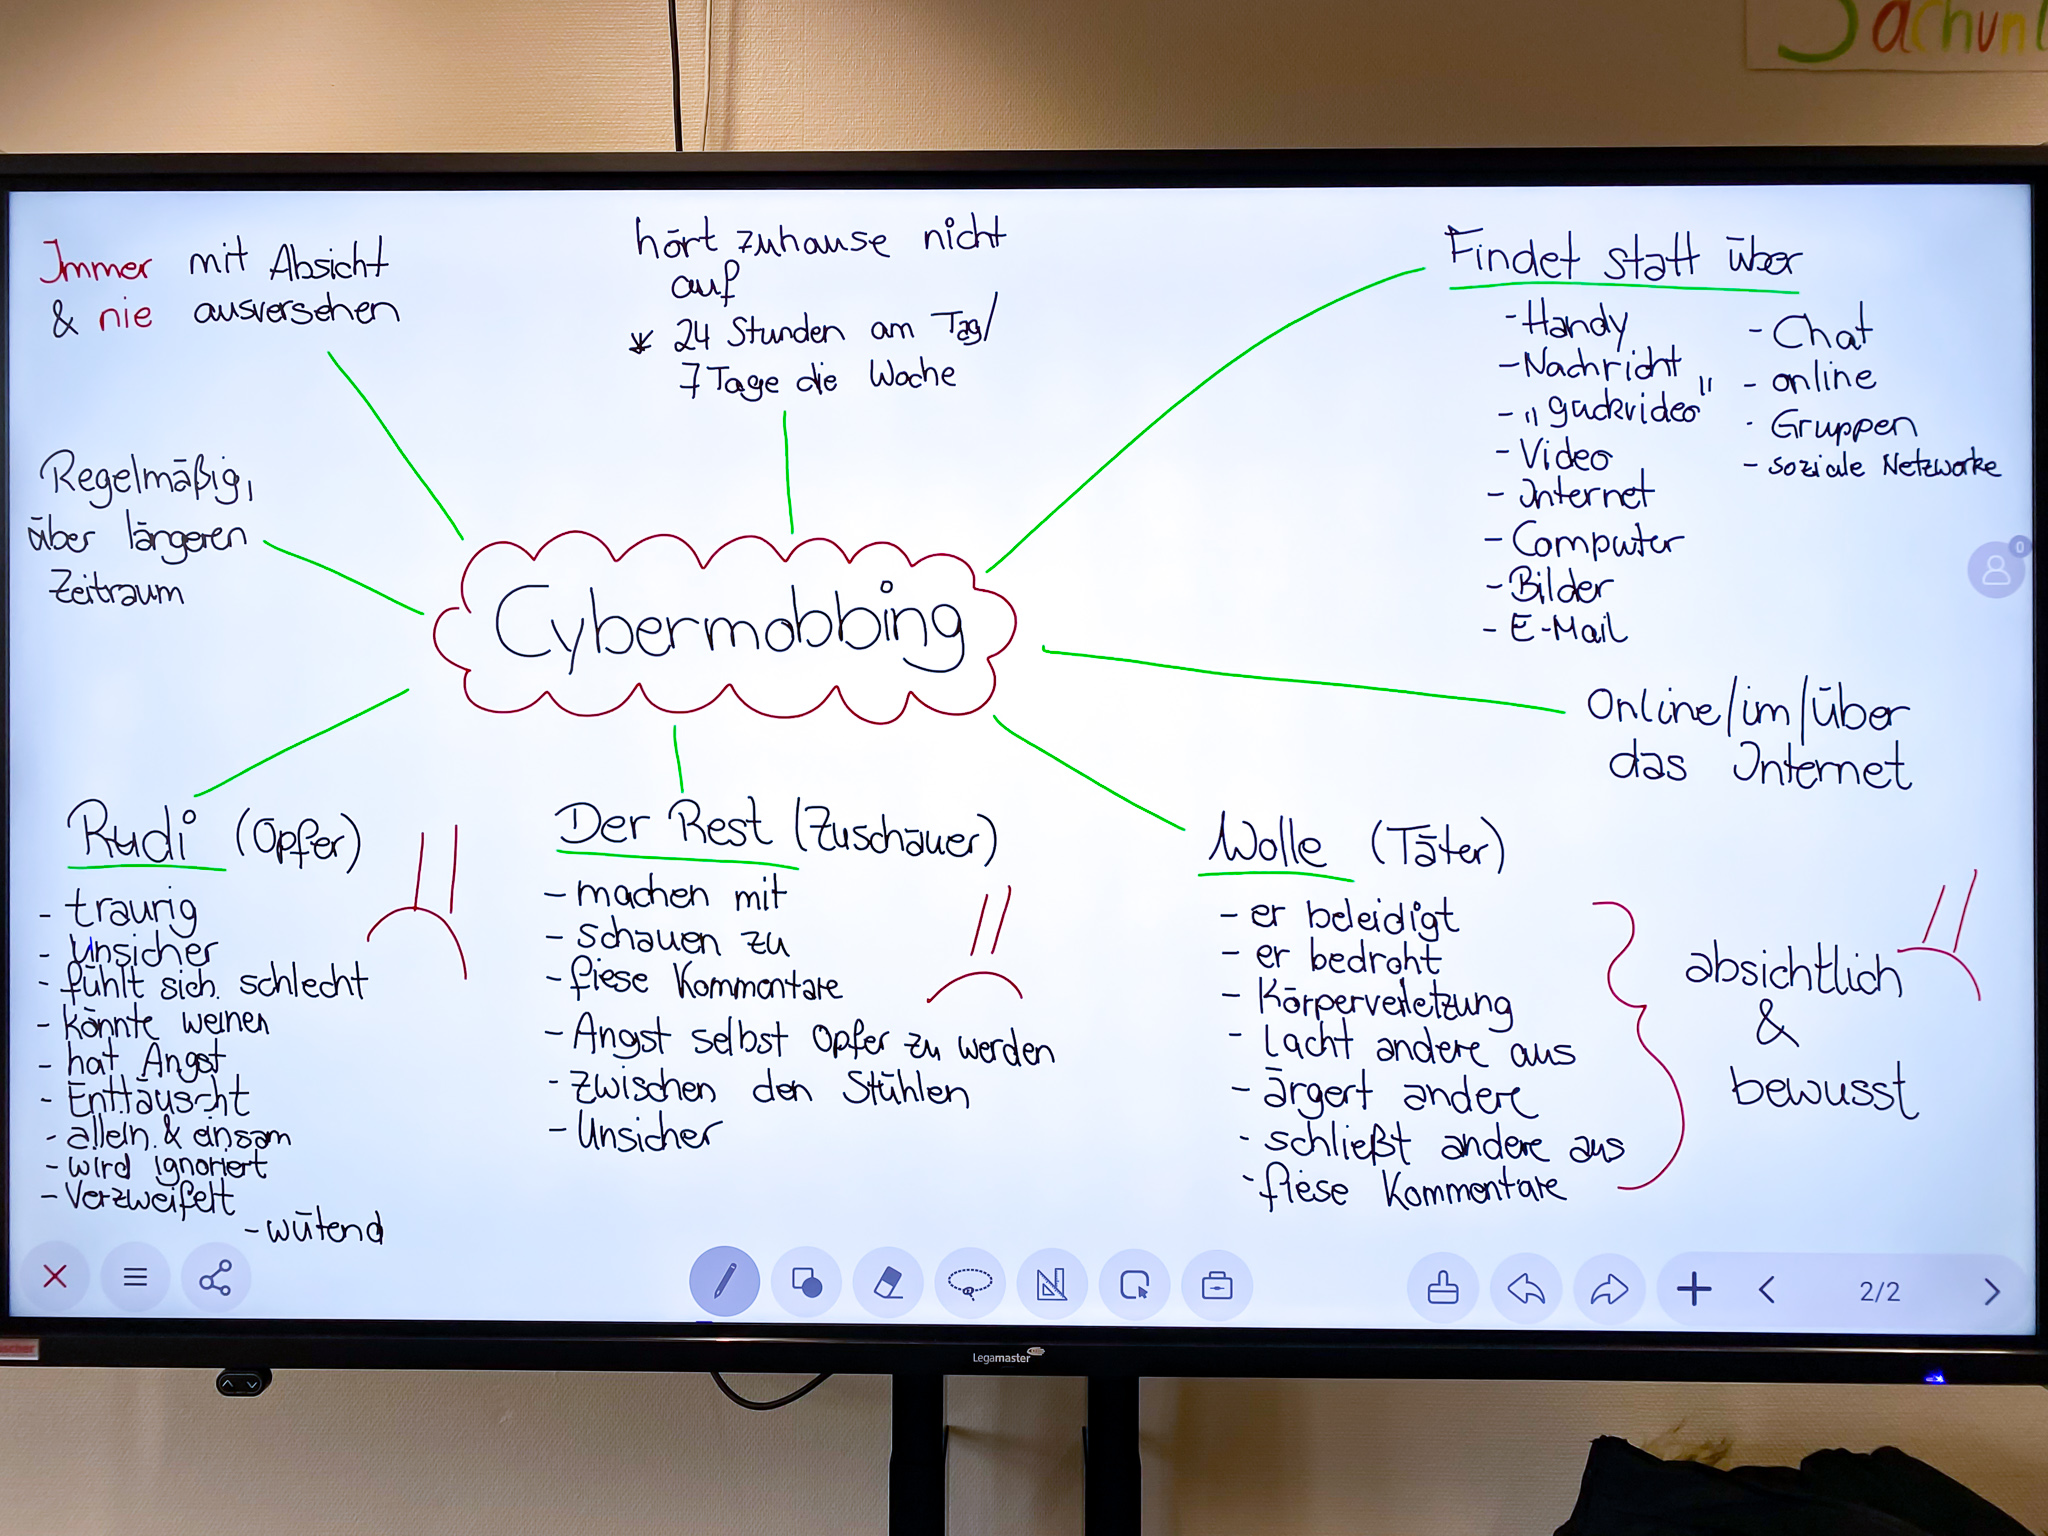 Sachun
Immer mit Absicht
& nie ausversehen
hört zuhause nicht
auf
* 24 Stunden am Tag/
7 Tage die Woche
Findet statt über
- Handy
- Nachricht
- "guckvideo"
- Video
- Internet
- Computer
- Bilder
- E-Mail
- Chat
- online
- Gruppen
- soziale Netzwerke
Regelmäßig,
über längeren
Zeitraum
0
Cybermobbing
Online/im/über
das Internet
Rudi (Opfer)
- traurig
- Unsicher
- fühlt sich schlecht
- könnte weinen
- hat Angst
- Enttäuscht
- allein & einsam
- wird ignoriert
- Verzweifelt
- wütend
Der Rest (Zuschauer)
- machen mit
- schauen zu
- fiese Kommentare
- Angst selbst Opfer zu werden
- zwischen den Stühlen
- Unsicher
Wolle (Täter)
- er beleidigt
- er bedroht
- Körperverletzung
- lacht andere aus
- ärgert andere
- schließt andere aus
- fiese Kommentare
absichtlich
&
bewusst
2/2
Legamaster